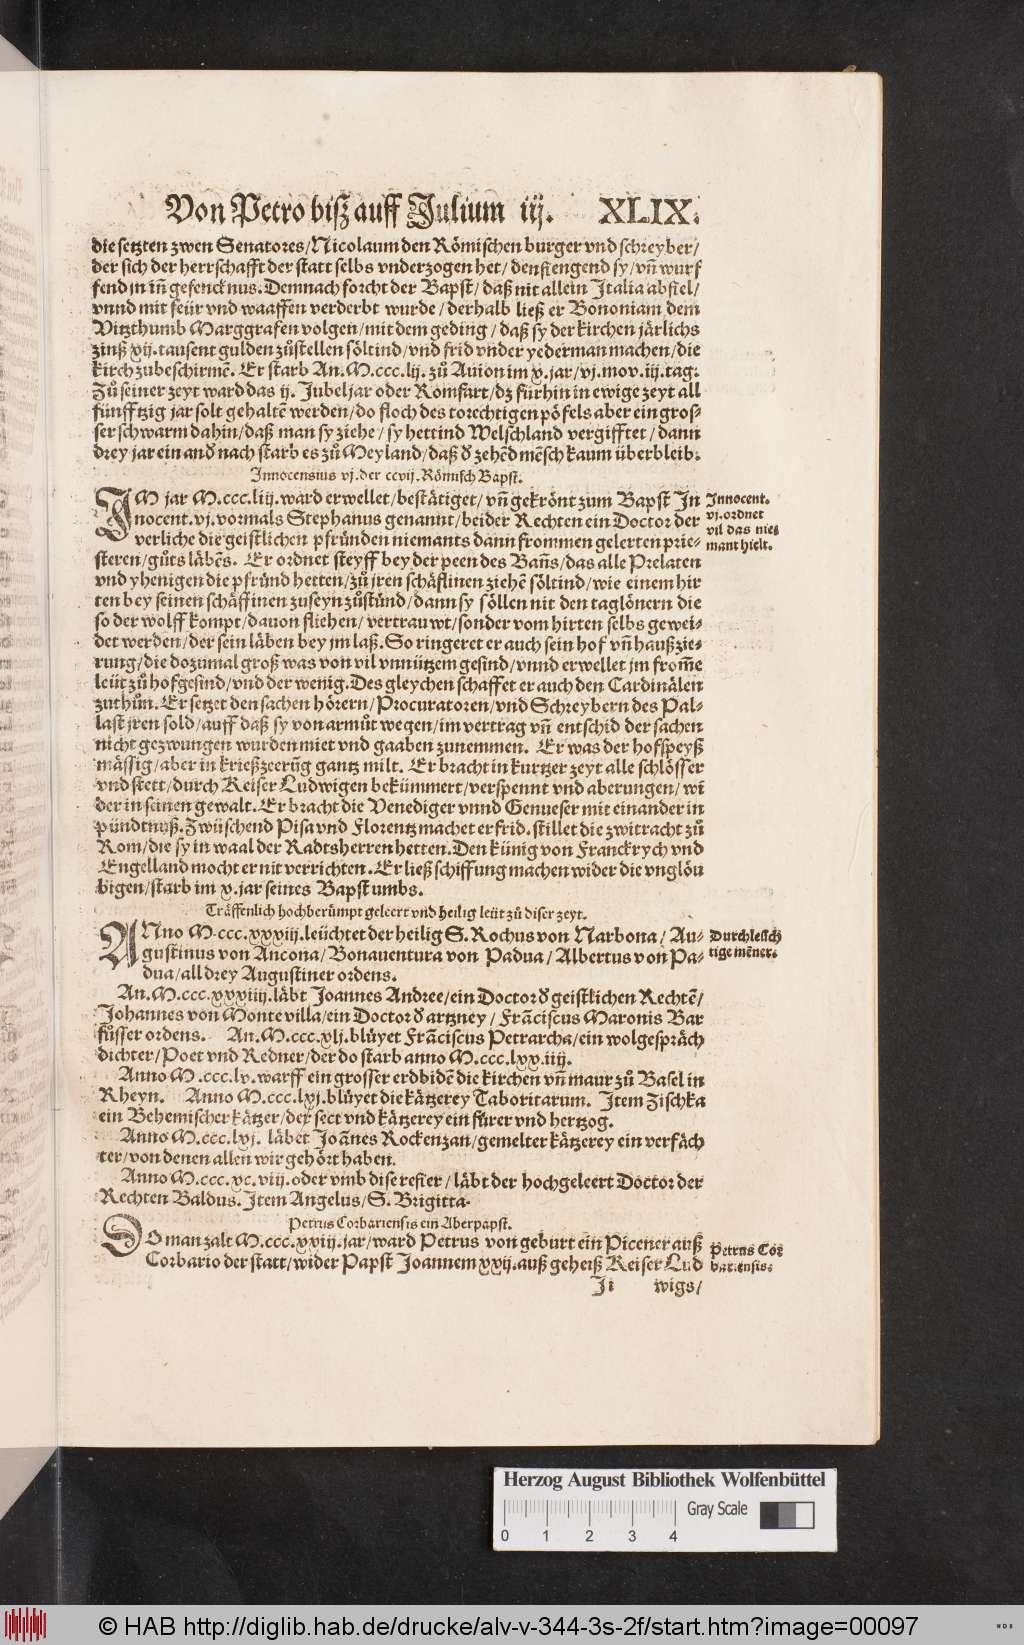 Von Petro biſz auff Julium iij. XLIX.
die ſetzten zwen Senatores/Nicolaum den Römiſchen burger vnd ſchreyber/
der ſich der herrſchafft der ſtatt ſelbs vnderzogen het/ denſiengend ſy/vñ wurf
fend jn iñ gefencknus. Demnach forcht der Bapſt/ daß nit allein Italia abfiel/
vnnd mit feür vnd waaffen verderbt wurde/derhalb ließ er Bononiam dem
Vitzthumb Marggrafen volgen/mit dem geding/ daß ſy der kirchen järlichs
zinß xij.tauſent gulden zůſtellen ſöltind/vnd frid vnder yederman machen/die
kirch zubeſchirmẽ. Er ſtarb An.M.ccc.lij. zů Auion im x.jar/vj.mov.iij.tag.
Zů ſeiner zeyt ward das ij. Jubeljar oder Romfart/dz fürhin in ewige zeyt all
fünfftzig jar ſolt gehaltẽ werden/do floch des torechtigen pöfels aber ein groſ-
ſer ſchwarm dahin/daß man ſy ziehe/ ſy hettind Welſchland vergifftet/ dann
drey jar ein and̕ nach ſtarb es zů Meyland/daß d̕ zehẽd mẽſch kaum überbleib.
Innocensius vj. der ccvij. Römiſch Bapſt.
IM jar M.ccc.liij.ward erwellet/beſtätiget/ vñ gekrönt zum Bapſt In
nocent.vj.vormals Stephanus genannt/beider Rechten ein Doctor der
verliche die geiſtlichen pfründen niemants dann frommen gelerten prie-
ſteren/gůts läbẽs. Er ordnet ſteyff bey der peen des Bañs/das alle Prelaten
vnd yhenigen die pfründ hetten/zů jren ſchäflinen ziehẽ ſöltind/wie einem hir
ten bey ſeinen ſchäffinen zuſeyn zůſtünd/dann ſy ſöllen nit den taglönern die
ſo der wolff kompt/dauon fliehen/ vertrauwt/ſonder vom hirten ſelbs gewei-
det werden/der ſein läben bey jm laß. So ringeret er auch ſein hof vñ haußzie-
rung/die dozumal groß was von vil vnnützem geſind/vnnd erwellet jm from̃e
leüt zů hofgeſind/vnd der wenig. Des gleychen ſchaffet er auch den Cardinälen
zuthůn. Er ſetzet den ſachen hörern/Procuratoren/vnd Schreybern des Pal-
laſt jren ſold/auff daß ſy von armůt wegen/im vertrag vñ entſchid der ſachen
nicht gezwungen wurden miet vnd gaaben zunemmen. Er was der hofſpeyß
mäſſig/aber in krießzeerũg gantz milt. Er bracht in kurtzer zeyt alle ſchlöſſer
vnd ſtett/durch Keiſer Ludwigen bekümmert/verſpennt vnd aberungen/ wi
der in ſeinen gewalt. Er bracht die Venediger vnnd Genueſer mit einander in
pündtnuß. Zwüſchend Piſa vnd Florentz machet er frid. ſtillet die zwitracht zů
Rom/die ſy in waal der Radtsherren hetten. Den künig von Franckrych vnd
Engelland mocht er nit verrichten. Er ließ ſchiffung machen wider die vnglöu
bigen/ſtarb im x.jar ſeines Bapſtumbs.
Innocent.
vj. ordnet
vil das nie-
mant hielt.
Träffenlich hochberümpt geleert vnd heilig leüt zů diſer zeyt.
ANno M.ccc.xxxiij.leüchtet der heilig S. Rochus von Narbona/ Au-
guſtinus von Ancona/Bonauentura von Padua/Albertus von Pa-
dua/all drey Auguſtiner ordens.
Durchleüch
tige mẽner.
An.M.ccc.xxxiiij.läbt Joannes Andree/ein Doctor d̕ geiſtlichen Rechtẽ/
Johannes von Monte villa/ein Doctor d̕ artzney/ Frãciſcus Maronis Bar
fůſſer ordens. An.M.ccc.xlj.blüyet Frãciſcus Petrarcha/ein wolgeſpräch
dichter/Poet vnd Redner/der do ſtarb anno M.ccc.lxx.iiij.
Anno M.ccc.lv.warff ein groſſer erdbidẽ die kirchen vñ maur zů Baſel in
Rheyn. Anno M.ccc.lxj.blüyet die kätzerey Taboritarum. Item Ziſchka
ein Behemiſcher kätzer/der ſect vnd kätzerey ein fürer vnd hertzog.
Anno M.ccc.lxj. läbet Joãnes Rockenzan/gemelter kätzerey ein verfäch
ter/von denen allen wir gehört haben.
Anno M.ccc.xc.viij.oder vmb diſe refier/läbt der hochgeleert Doctor der
Rechten Baldus. Item Angelus/S. Brigitta.
Petrus Corbarienſis ein Aberpapſt.
DO man zalt M.ccc.xxiij.jar/ward Petrus von geburt ein Picener auß
Corbario der ſtatt/wider Papſt Joannem xxij.auß geheiß Keiſer Lud
Petrus Cor
barienſis.
Ji wigs/
Herzog August Bibliothek Wolfenbüttel
Gray Scale
0 1 2 3 4
© HAB http://diglib.hab.de/drucke/alv-v-344-3s-2f/start.htm?image=00097